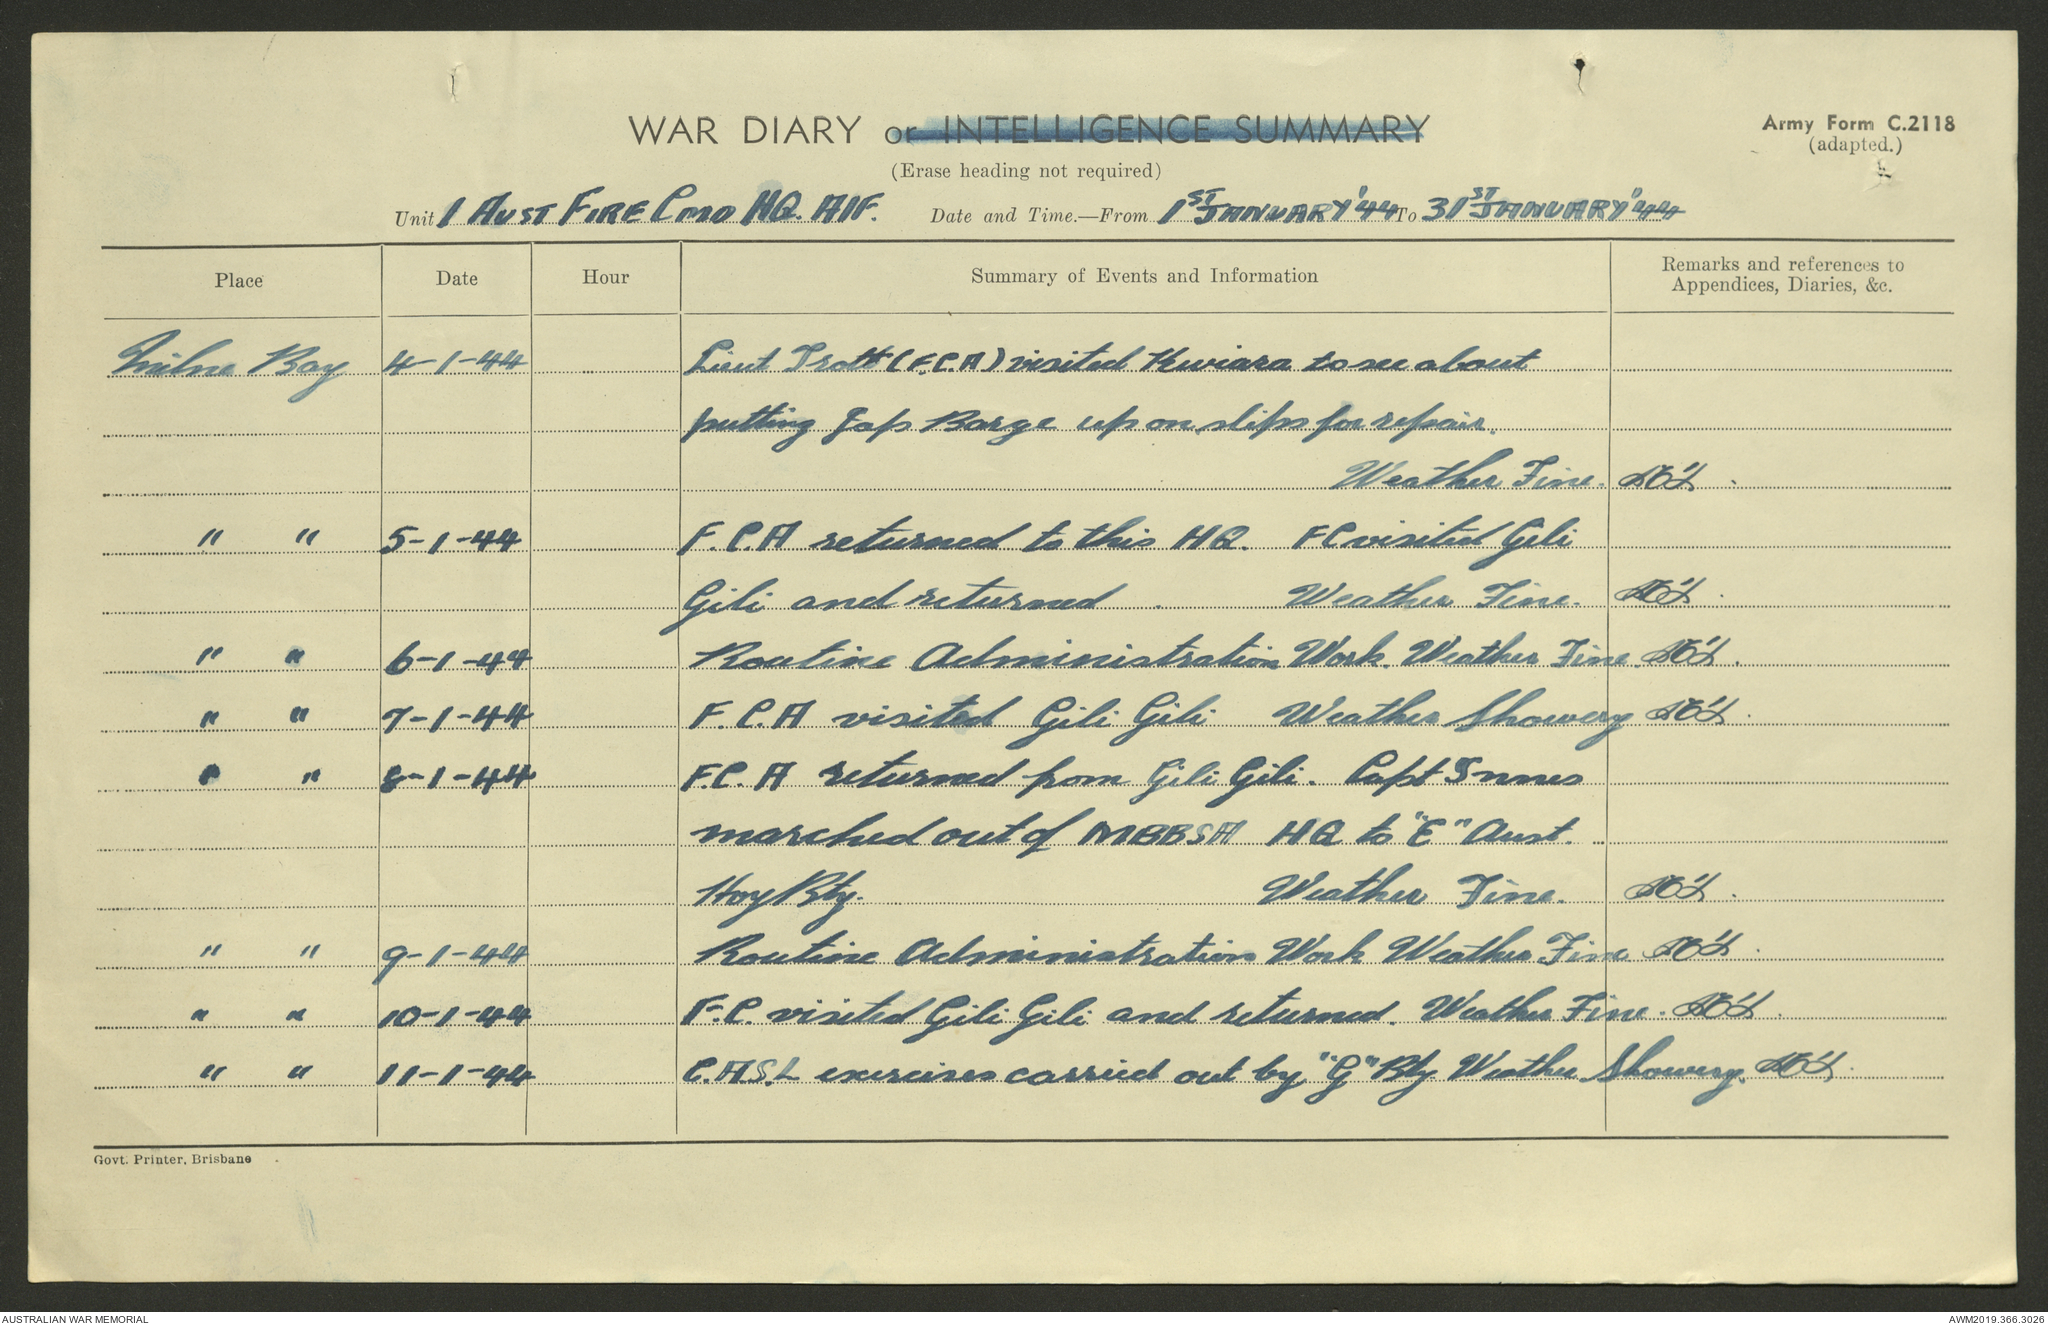 WAR DIARY or INTELLIGENCE SUMMARY
(Erase heading not required)
Army Form C.2118
(adapted.)
Unit 1 AUST FIRE CMD HQ. AIF. Date and Time.—From 1ST JANUARY '44 To 31ST JANUARY '44
Place Date Hour Summary of Events and Information Remarks and references to Appendices, Diaries, &c.
Milne Bay 4-1-44 Lieut Trott (F.C.A) visited Kwiara to see about
putting Jap Barge up on slips for repair.
Weather Fine.
" " 5-1-44 F.C.A returned to this HQ. FC visited Gili
Gili and returned. Weather Fine.
" " 6-1-44 Routine Administration Work. Weather Fine.
" " 7-1-44 F.C.A visited Gili Gili Weather Showery
" " 8-1-44 F.C.A returned from Gili Gili. Capt Innes
marched out of MBBSA HQ to "E" Aust.
Hvy Bty. Weather Fine.
" " 9-1-44 Routine Administration Work Weather Fine
" " 10-1-44 F.C. visited Gili Gili and returned. Weather Fine.
" " 11-1-44 C.A.S.L exercises carried out by "G" Bty Weather Showery.
Govt. Printer, Brisbane
AUSTRALIAN WAR MEMORIAL
AWM2019.366.3026